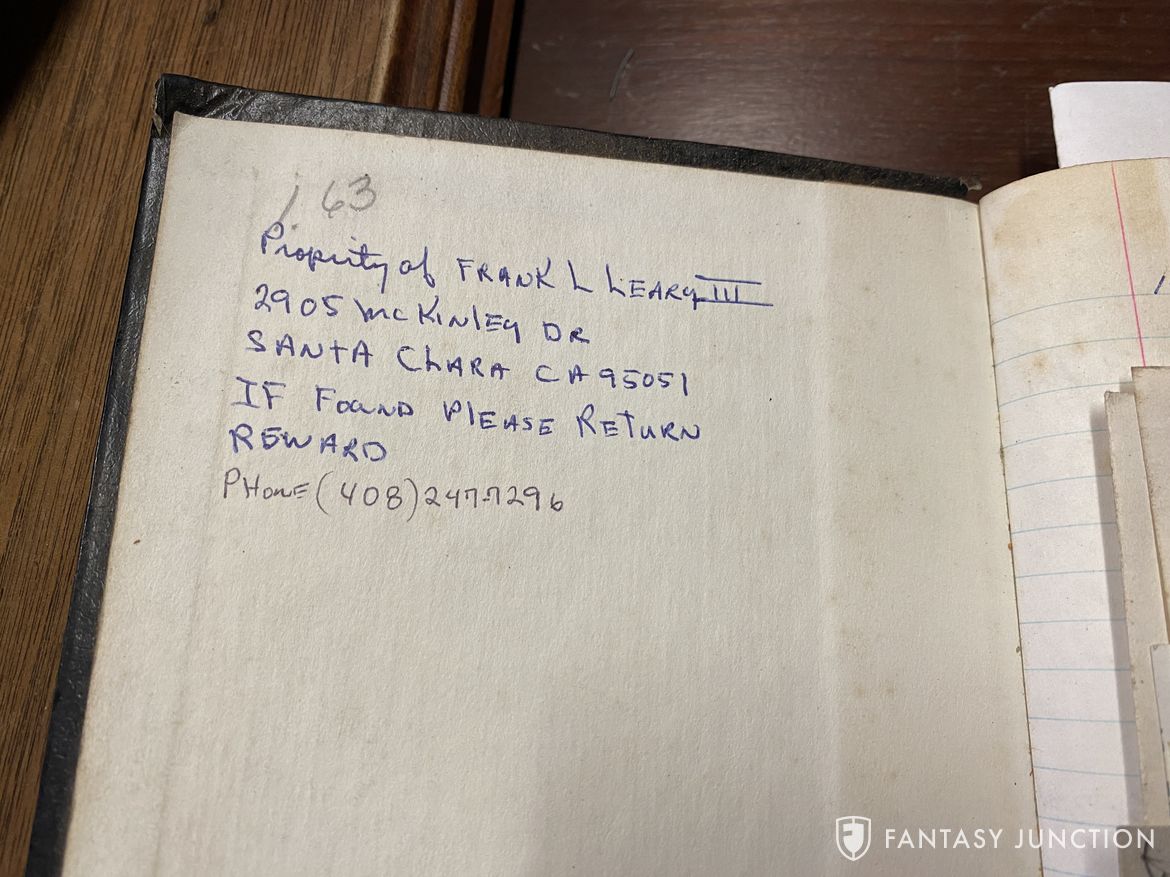 63
Property of FRANK L LEARY III
2905 McKinley DR
SANTA CLARA CA 95051
IF FOUND PLEASE RETURN
REWARD
PHONE (408) 247-7296
FANTASY JUNCTION